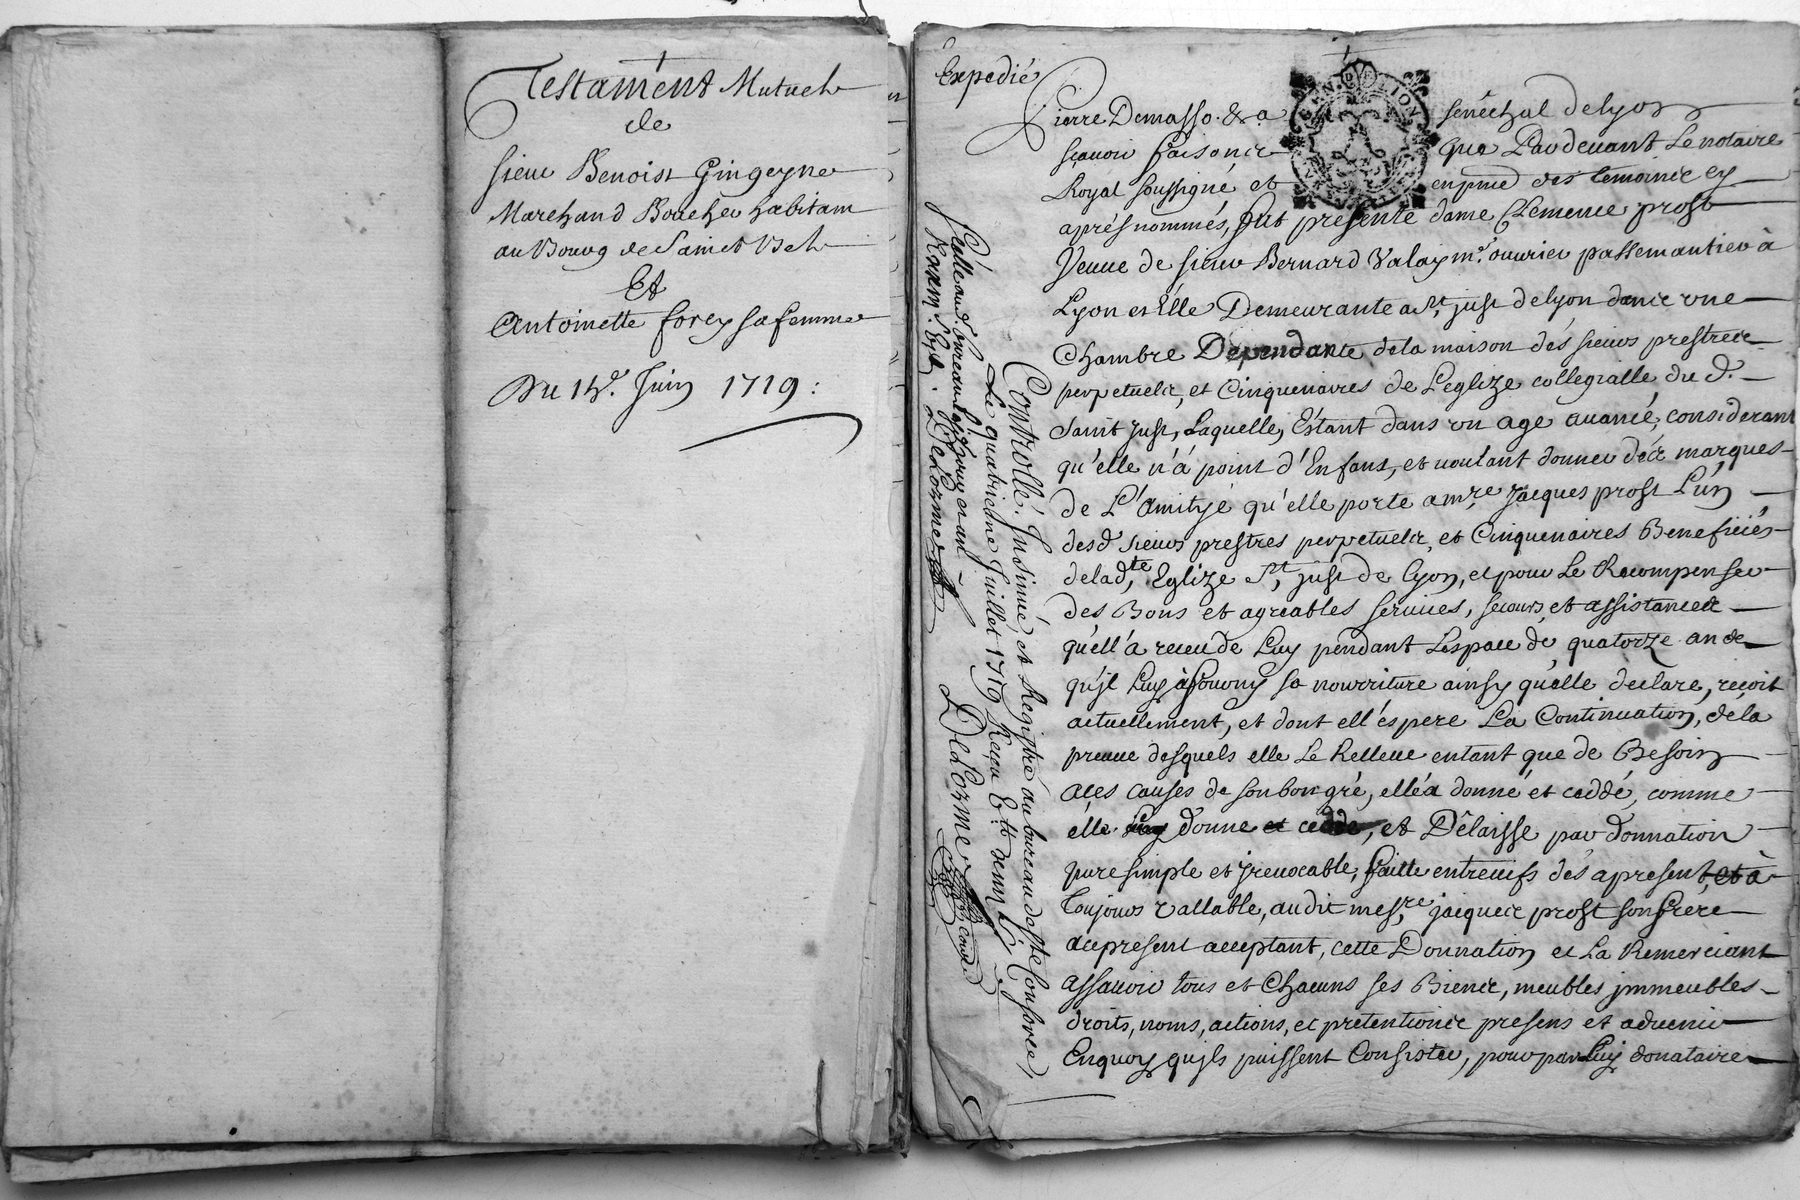 Testament Mutuel
de
sieur Benoist Gingeyne
Marchand Boucher habitant
au Bourg de Sainct Bel
Et
Antoinette forey sa femme
Du 14e. Juin 1719:
Expedié
Pierre Demasso. & a senéchal de lyon
sçauoir faisons que Pardeuant Le notaire
Royal soussigné et en pnce des temoins cy
aprés nommés, fut presente dame Clemence prost
Veuue de sieur Bernard Valay mre. ouurier passemantier à
Lyon et Elle Demeurante a St, just de lyon dans vne
Chambre Dependante de la maison dés sieurs prestres
perpetuels, et Cinquenaires de L'eglize collegialle du d.
Saint just, Laquelle, Estant dans vn age auancé, considerant
qu'elle n'á point d'Enfans, et uoulant donner dés marques
de L'amityé qu'elle porte a mre Jacques prost L'un
des d sieurs prestres perpetuels, et Cinquenaires Beneficiés
de lad,te Eglize St, just de lyon, et pour Le Recompenser
des Bons et agreables seruices, secours et assistances
qu'ell'á receu de Luy pendant L'espace de quatorze ans
qu'jl Luy à fourny sa nourriture ainsy qu'elle declare, reçoit
actuellement, et dont ell'éspere La Continuation, de la
preuue desquels elle Le Relleue entant que de Besoin
a ces causes de son bon gré, elle á donné et ceddé, comme
elle donne et cedde, et Délaisse par donnation
pure simple et jreuocable, faitte entreuifs dés apresent, et à
Toujours vallable, au dit mesre, jacques prost son frere
acepresent acceptant, cette Donnation et La Remerciant
assauoir tous et Chacuns ses Biens, meubles jmmeubles
droits, noms, actions, et pretentions presens et aduenir
Enquoy qu'jls puissent Consister, pour par Luy donataire
Controllé, Insinué, et Registré au bureau de Ste Consorce,
Le quatrieme Juillet 1719 Receu
Scellé aud. bureau lesd. jour et an
DeLorme
DeLorme